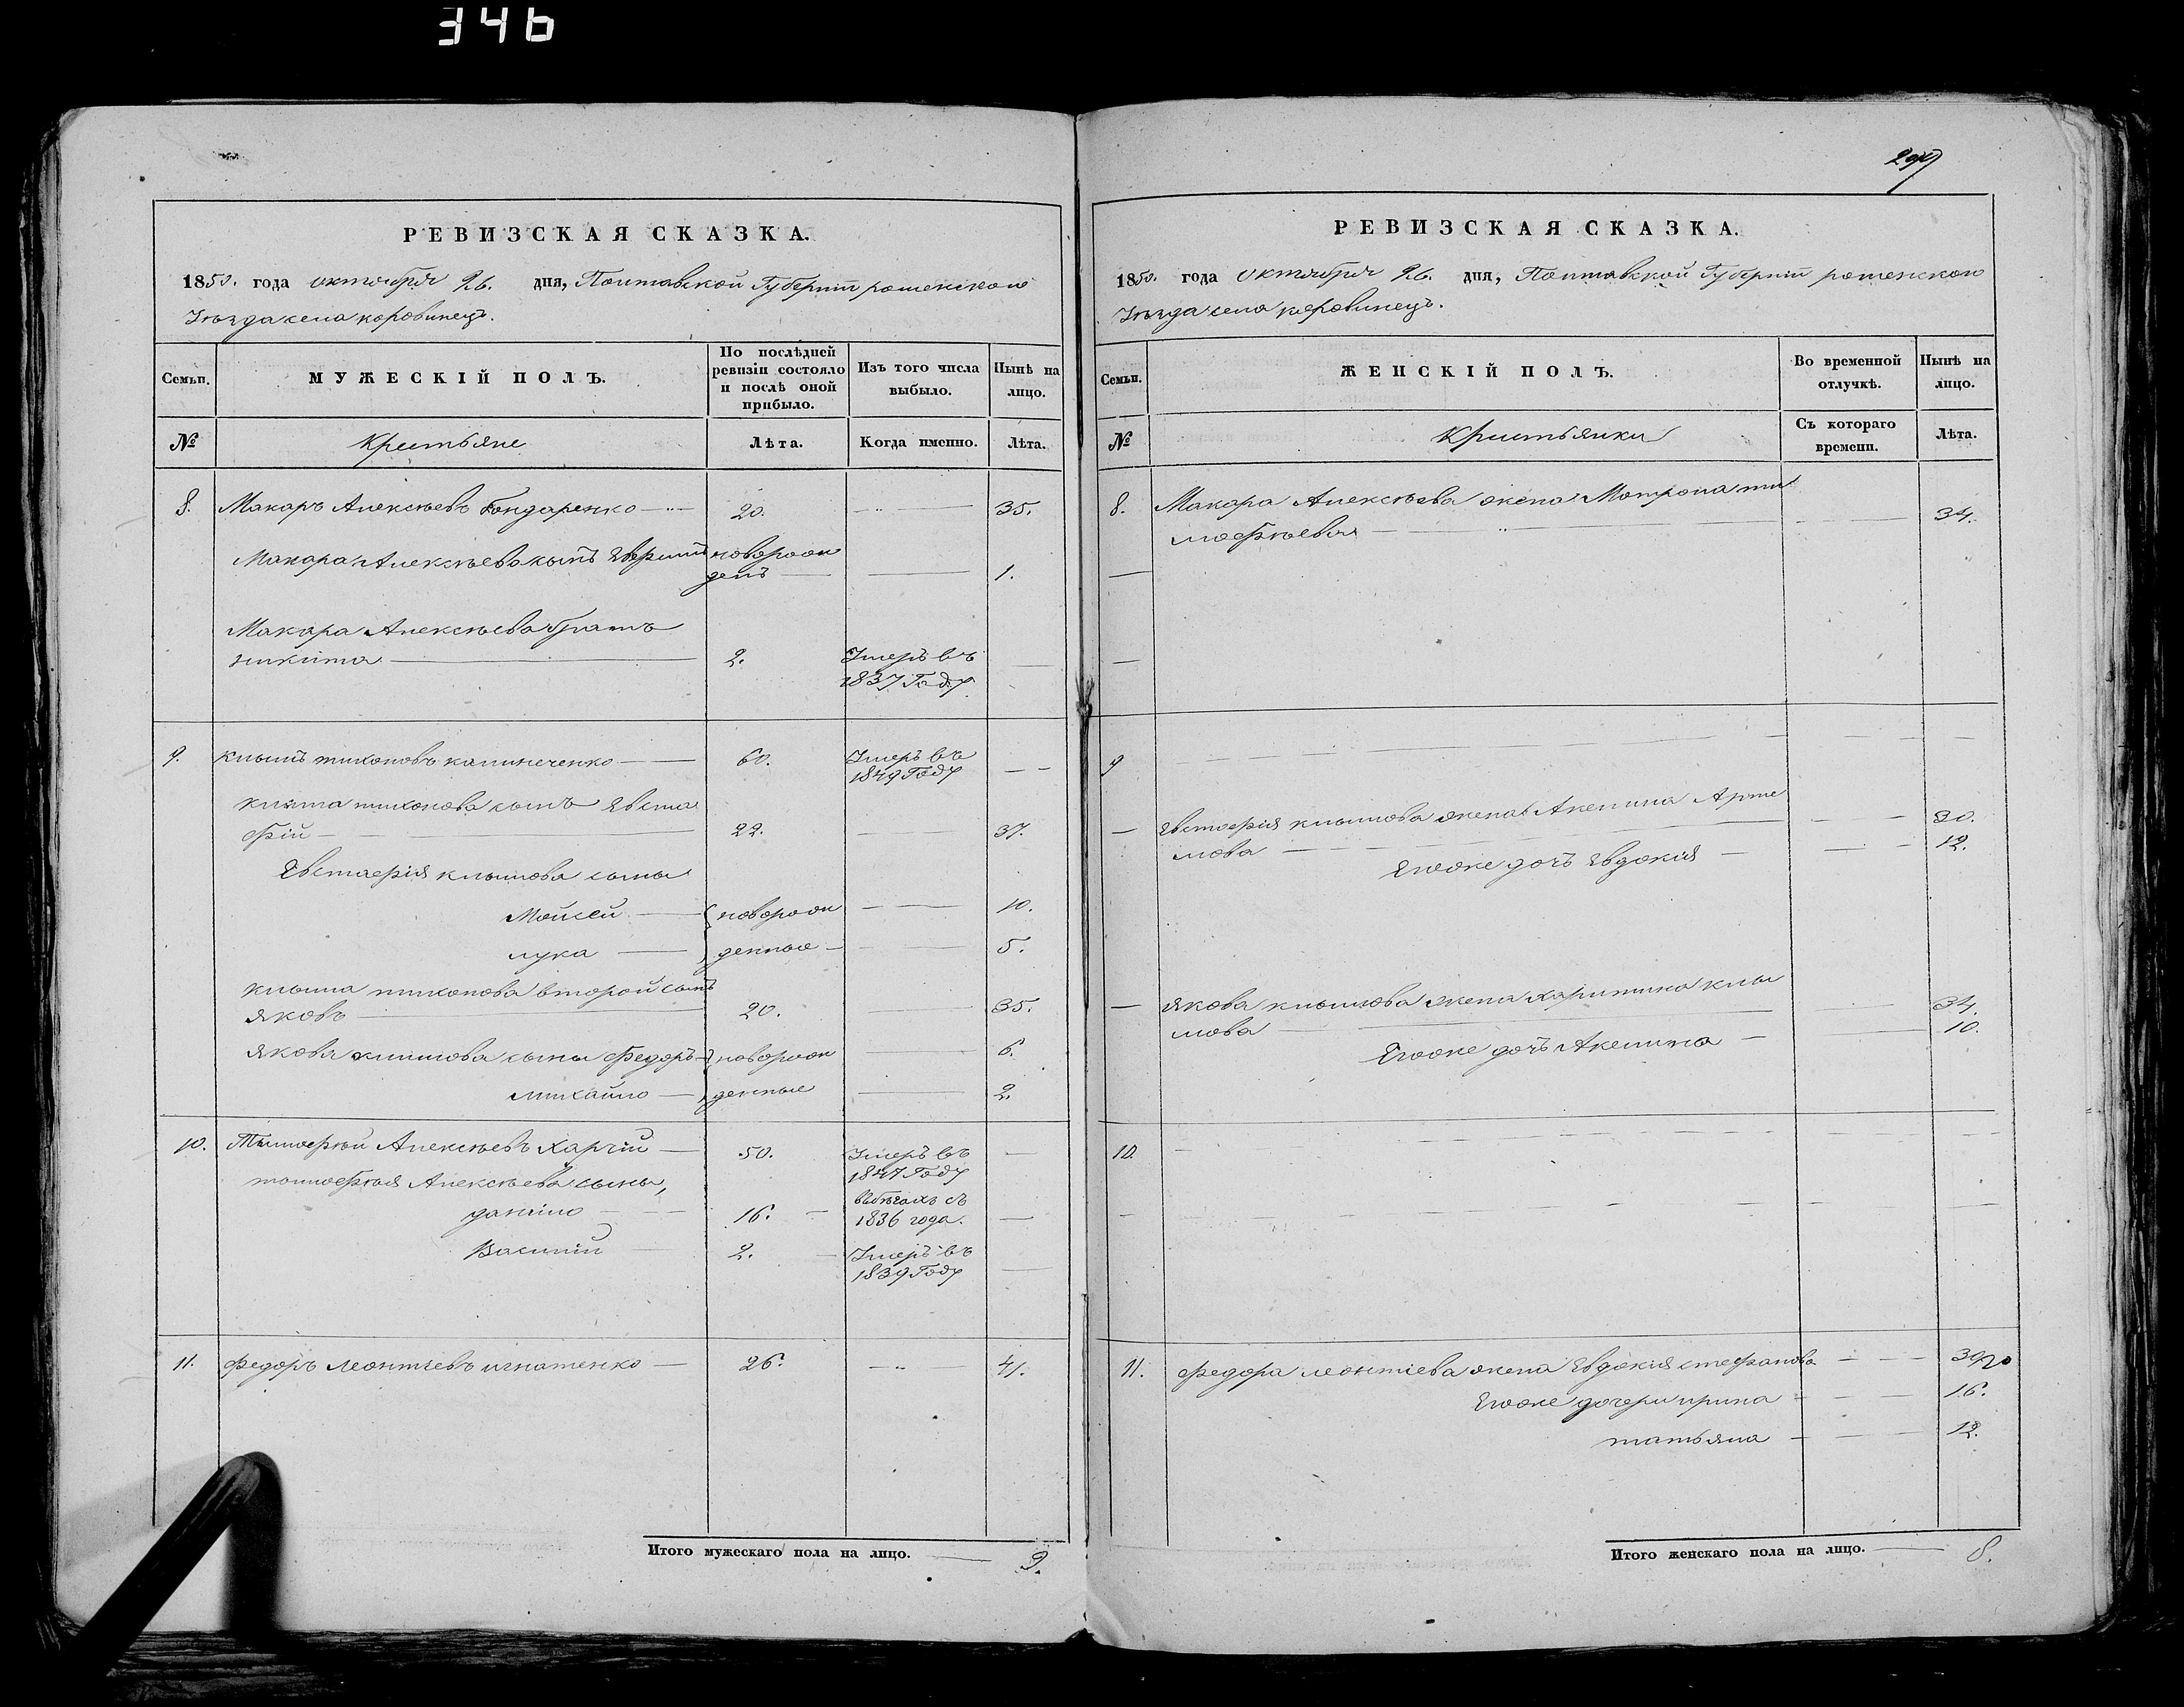 346
РЕВИЗСКАЯ СКАЗКА.
1850. года октября 26. дня, Полтавской Губерніи роменского
Уезда села коровинецъ.
Семьи.
МУЖЕСКІЙ ПОЛЪ.
По послѣдней ревизіи состояло и послѣ оной прибыло.
Изъ того числа выбыло.
Нынѣ на лицо.
№
Крестьяне
Лѣта.
Когда именно.
Лѣта.
8. Макаръ Алексѣевъ Бондаренко 20. 35.
Макара Алексѣева сынъ новорож
денъ 1.
Макара Алексѣева братъ
никита 2. Умеръ въ
1837 Году
9. климъ тихоновъ калиниченко 60. Умеръ въ
1849 Году
клима тихонова сынъ Евста
фій 22. 37.
Евстафія климова сыны
Мойсей новорож 10.
лука денные 5.
клима тихонова второй сынъ
яковъ 20. 35.
якова климова сыны Федоръ новорож 6.
михайло денные 2.
10. Тимофѣй Алексѣевъ Харчій 50. Умеръ въ
1847 Году
тимофѣя Алексѣева сыны,
данило 16. въ бѣгахъ съ
1836 года.
Василій 2. Умеръ въ
1839 Году
11. Федоръ леонтіевъ игнатенко 26. 41.
Итого мужескаго пола на лицо. 9.
297
РЕВИЗСКАЯ СКАЗКА.
1850. года октября 26. дня, Полтавской Губерніи роменского
Уезда села коровинецъ.
Семьи.
ЖЕНСКІЙ ПОЛЪ.
Во временной отлучкѣ.
Нынѣ на лицо.
№
Крестьянки
Съ котораго времени.
Лѣта.
8. Макара Алексѣева жена Мотрона ти
мофѣева 34.
9
Евстафія климова жена Акелина Арте 30.
мова 12.
Егоже дочь Евдокія
якова климова жена харитина кли 34.
мова 10.
Егоже дочь Акелина
10.
11. Федора леонтіева жена Евдокія стефанова 39
Егоже дочери ирина 16.
татьяна 12.
Итого женскаго пола на лицо. 8.